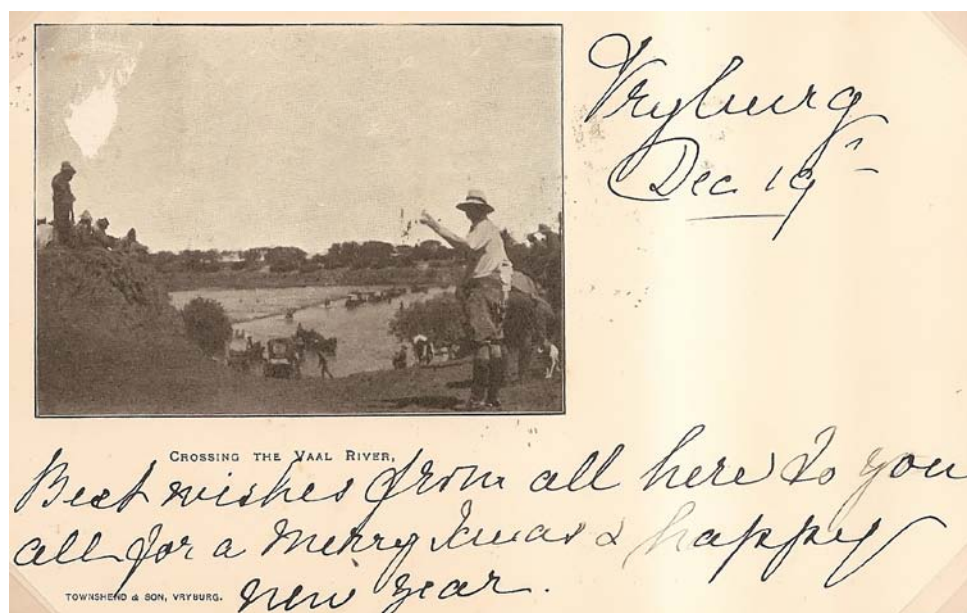 Vryburg
Dec 19th
CROSSING THE VAAL RIVER,
Best wishes from all here to you
all for a Merry Xmas & happy
new year.
TOWNSHEND & SON, VRYBURG.